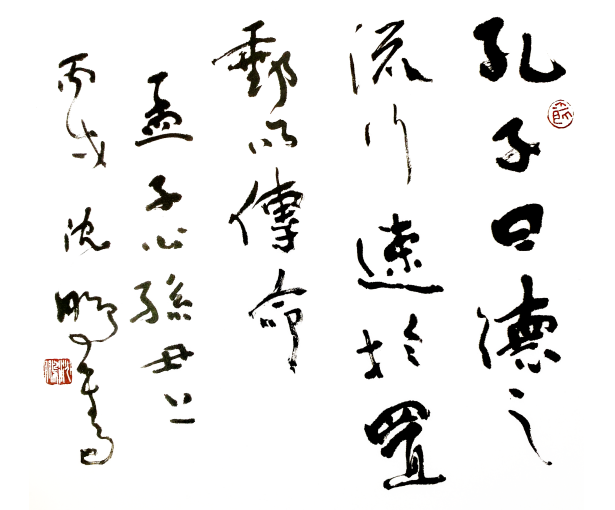 孔子曰德之
流行速於置
郵以傳命
孟子公孫丑上
丙戌沈鵬書